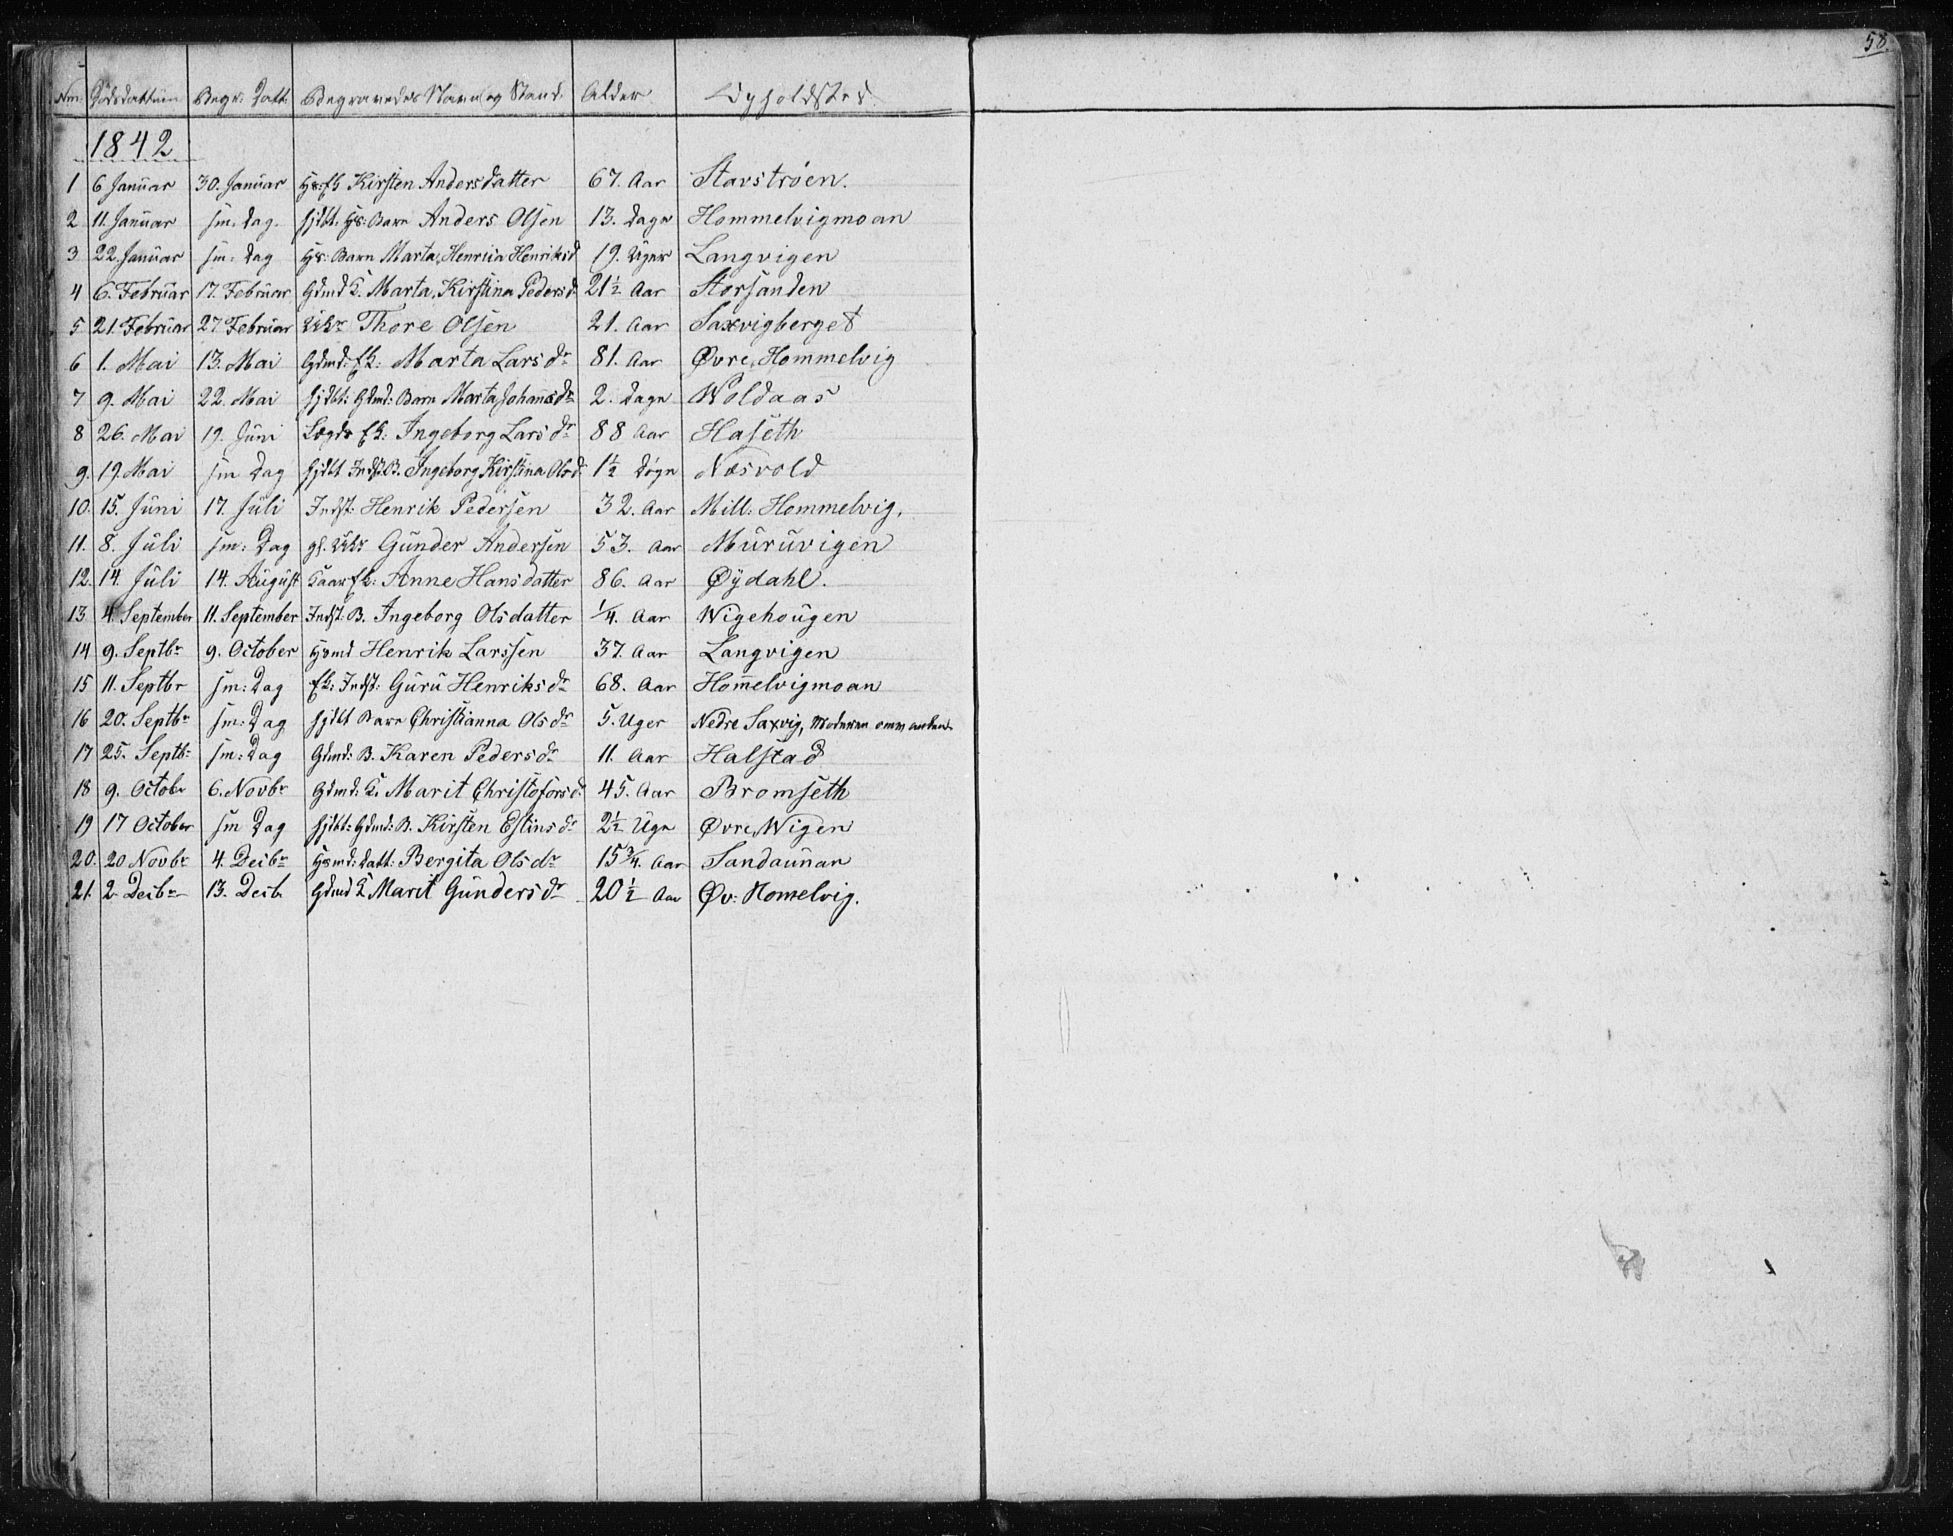 58.
Nm: Dödsdattum Begr: Datt: Begravedes Navn og Stand. Alder Opholdsted.
1842
1 6 Januar 30. Januar Hs: Ek Kirsten Andersdatter 67. Aar Stavströen.
2 11. Januar sm. Dag. hjdbt. Hs: Barn Anders Olsen 13. Dage Hommelvigmoan
3 22. Januar sm: Dag Hs: Barn Marta, Henrica Henriksd 19. Uger Langvigen
4 6. Februar 17. Februar Gdmd K. Marta, Kirstina Pedersd. 21½ Aar Storsanden
5 21. Februar 27 Februar Thore Olsen 21. Aar Saxvigberget
6 1. Mai 13. Mai Gdmd: Ek: Marta Larsdr 81. Aar Øvre, Hommelvig
7 9. Mai 22. Mai hjdbt: Gdmd: Barn Marta Johansdr 2. Dage Woldaas
8 26. Mai 19. Juni Lægds Ek: Ingeborg Larsdr 88 Aar Haseth
9. 19. Mai sm Dag hjdbt Indst. B. Ingeborg Kirstina Olsd. 1½ Døgn Næsvold
10. 15. Juni 17. Juli Indst: Henrik Pedersen 32. Aar Mill: Hommelvig.
11. 8. Juli sm: Dag gl. Gunder Andersen 53. Aar Muruvigen
12. 14. Juli 14. August Kaar Ek: Anne Hansdatter 86. Aar Øydahl.
13. 4. September 11. September Indst: B. Ingeborg Olsdatter ¼. Aar Wigehougen
14 9. Septbr 9. October Hsmd Henrik Larssen 37. Aar Langvigen
15 11. Septbr sm: Dag Ek: Indst: Guru Henriksdr 68. Aar Hom̄elvigmoan
16 20. Septbr sm: Dag hjdbt Barn Christianna Olsdr 5. Uger Nedre Saxvig, Moderen
17 25. Septbr sm: Dag Gdmd: B. Karen Pedersdr 11. Aar Halstad
18 9. Octobr 6. Novbr Gdmd: K. Marit Christoforsd. 45. Aar Bromseth
19 17 October sm Dag hjdbt: Gdmd: B. Kirsten Estinsdr 2½ Uge Øvre, Wigen
20. 20 Novbr 4. Decbr Hsmd: Datt: Bergita Olsdr 15¾. Aar Sandaunan
21. 2. Decbr 13. Decb. Gdmd K Marit Gundersdr 20½ Aar Øv: Homelvig.